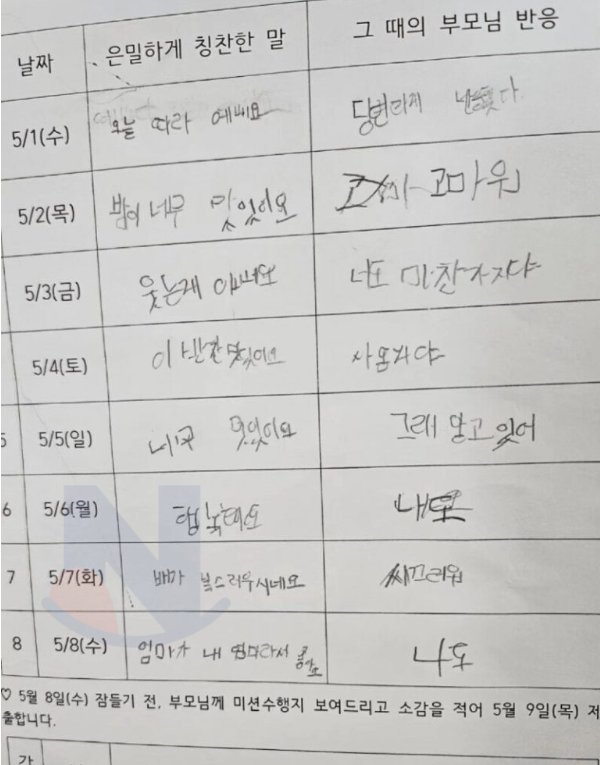 날짜 은밀하게 칭찬한 말 그 때의 부모님 반응
5/1(수) 오늘 따라 예뻐요 당연하지
5/2(목) 밥이 너무 맛있어요 고마워
5/3(금) 웃는게 너도 마찬가지야
5/4(토) 이 반찬 맛있어요 사온거야
5/5(일) 너무 멋있어요 그래 알고 있어
6 5/6(월) 행복해요 내도
7 5/7(화) 배가 부드러우시네요 씨끄러워
8 5/8(수) 엄마가 내 엄마라서 좋아요 나도
♡ 5월 8일(수) 잠들기 전, 부모님께 미션수행지 보여드리고 소감을 적어 5월 9일(목) 제
출합니다.